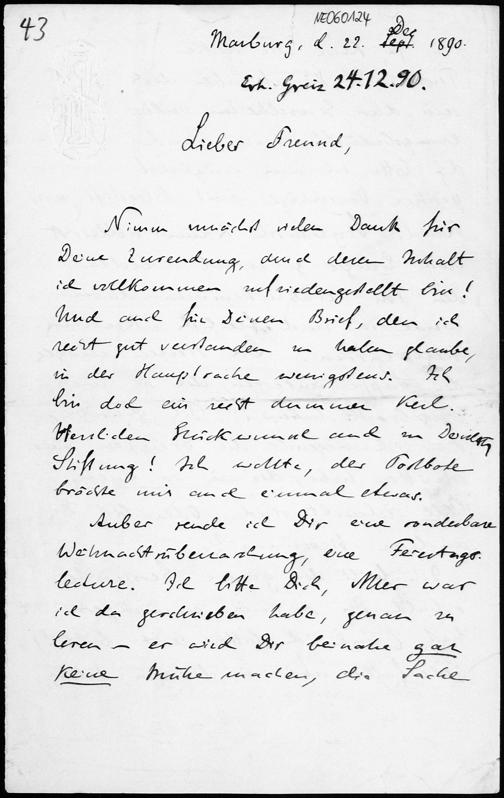 43
NE060124
Marburg, d. 22. Dec
Sept. 1890.
Erh. Greiz 24.12.90.
Lieber Freund,
Nimm zunächst vielen Dank für
Deine Zusendung, durch deren Inhalt
ich vollkommen zufriedengestellt bin!
Und auch für Deinen Brief, den ich
recht gut verstanden zu haben glaube,
in der Hauptsache wenigstens. Ich
bin doch ein recht dummer Kerl.
Herzlichen Glückwunsch auch zu
Stiftung! Ich wollte, der Postbote
brächte mir auch einmal etwas.
Anbei sende ich Dir eine sonderbare
Weihnachtsüberraschung, eine Feiertags-
lectüre. Ich bitte Dich, Alles was
ich da geschrieben habe, genau zu
lesen – es wird Dir beinahe gar
keine Mühe machen, die Sache